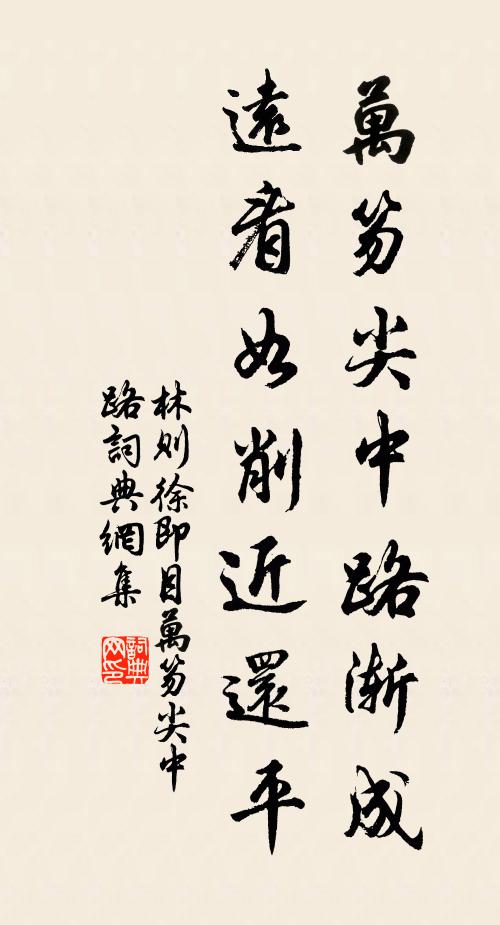 萬笏尖中路漸成
遠看如削近還平
林則徐即目萬笏尖中
路詞典網集
詞典网印